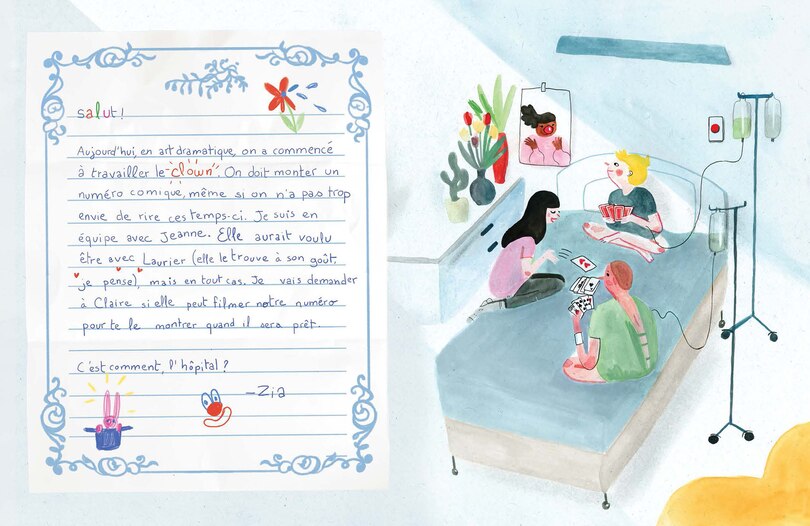 Salut !
Aujourd'hui, en art dramatique, on a commencé
à travailler le clown. On doit monter un
numéro comique, même si on n'a pas trop
envie de rire ces temps-ci. Je suis en
équipe avec Jeanne. Elle aurait voulu
être avec Laurier (elle le trouve à son goût,
je pense), mais en tout cas. Je vais demander
à Claire si elle peut filmer notre numéro
pour te le montrer quand il sera prêt.
C'est comment, l'hôpital ?
-Zia